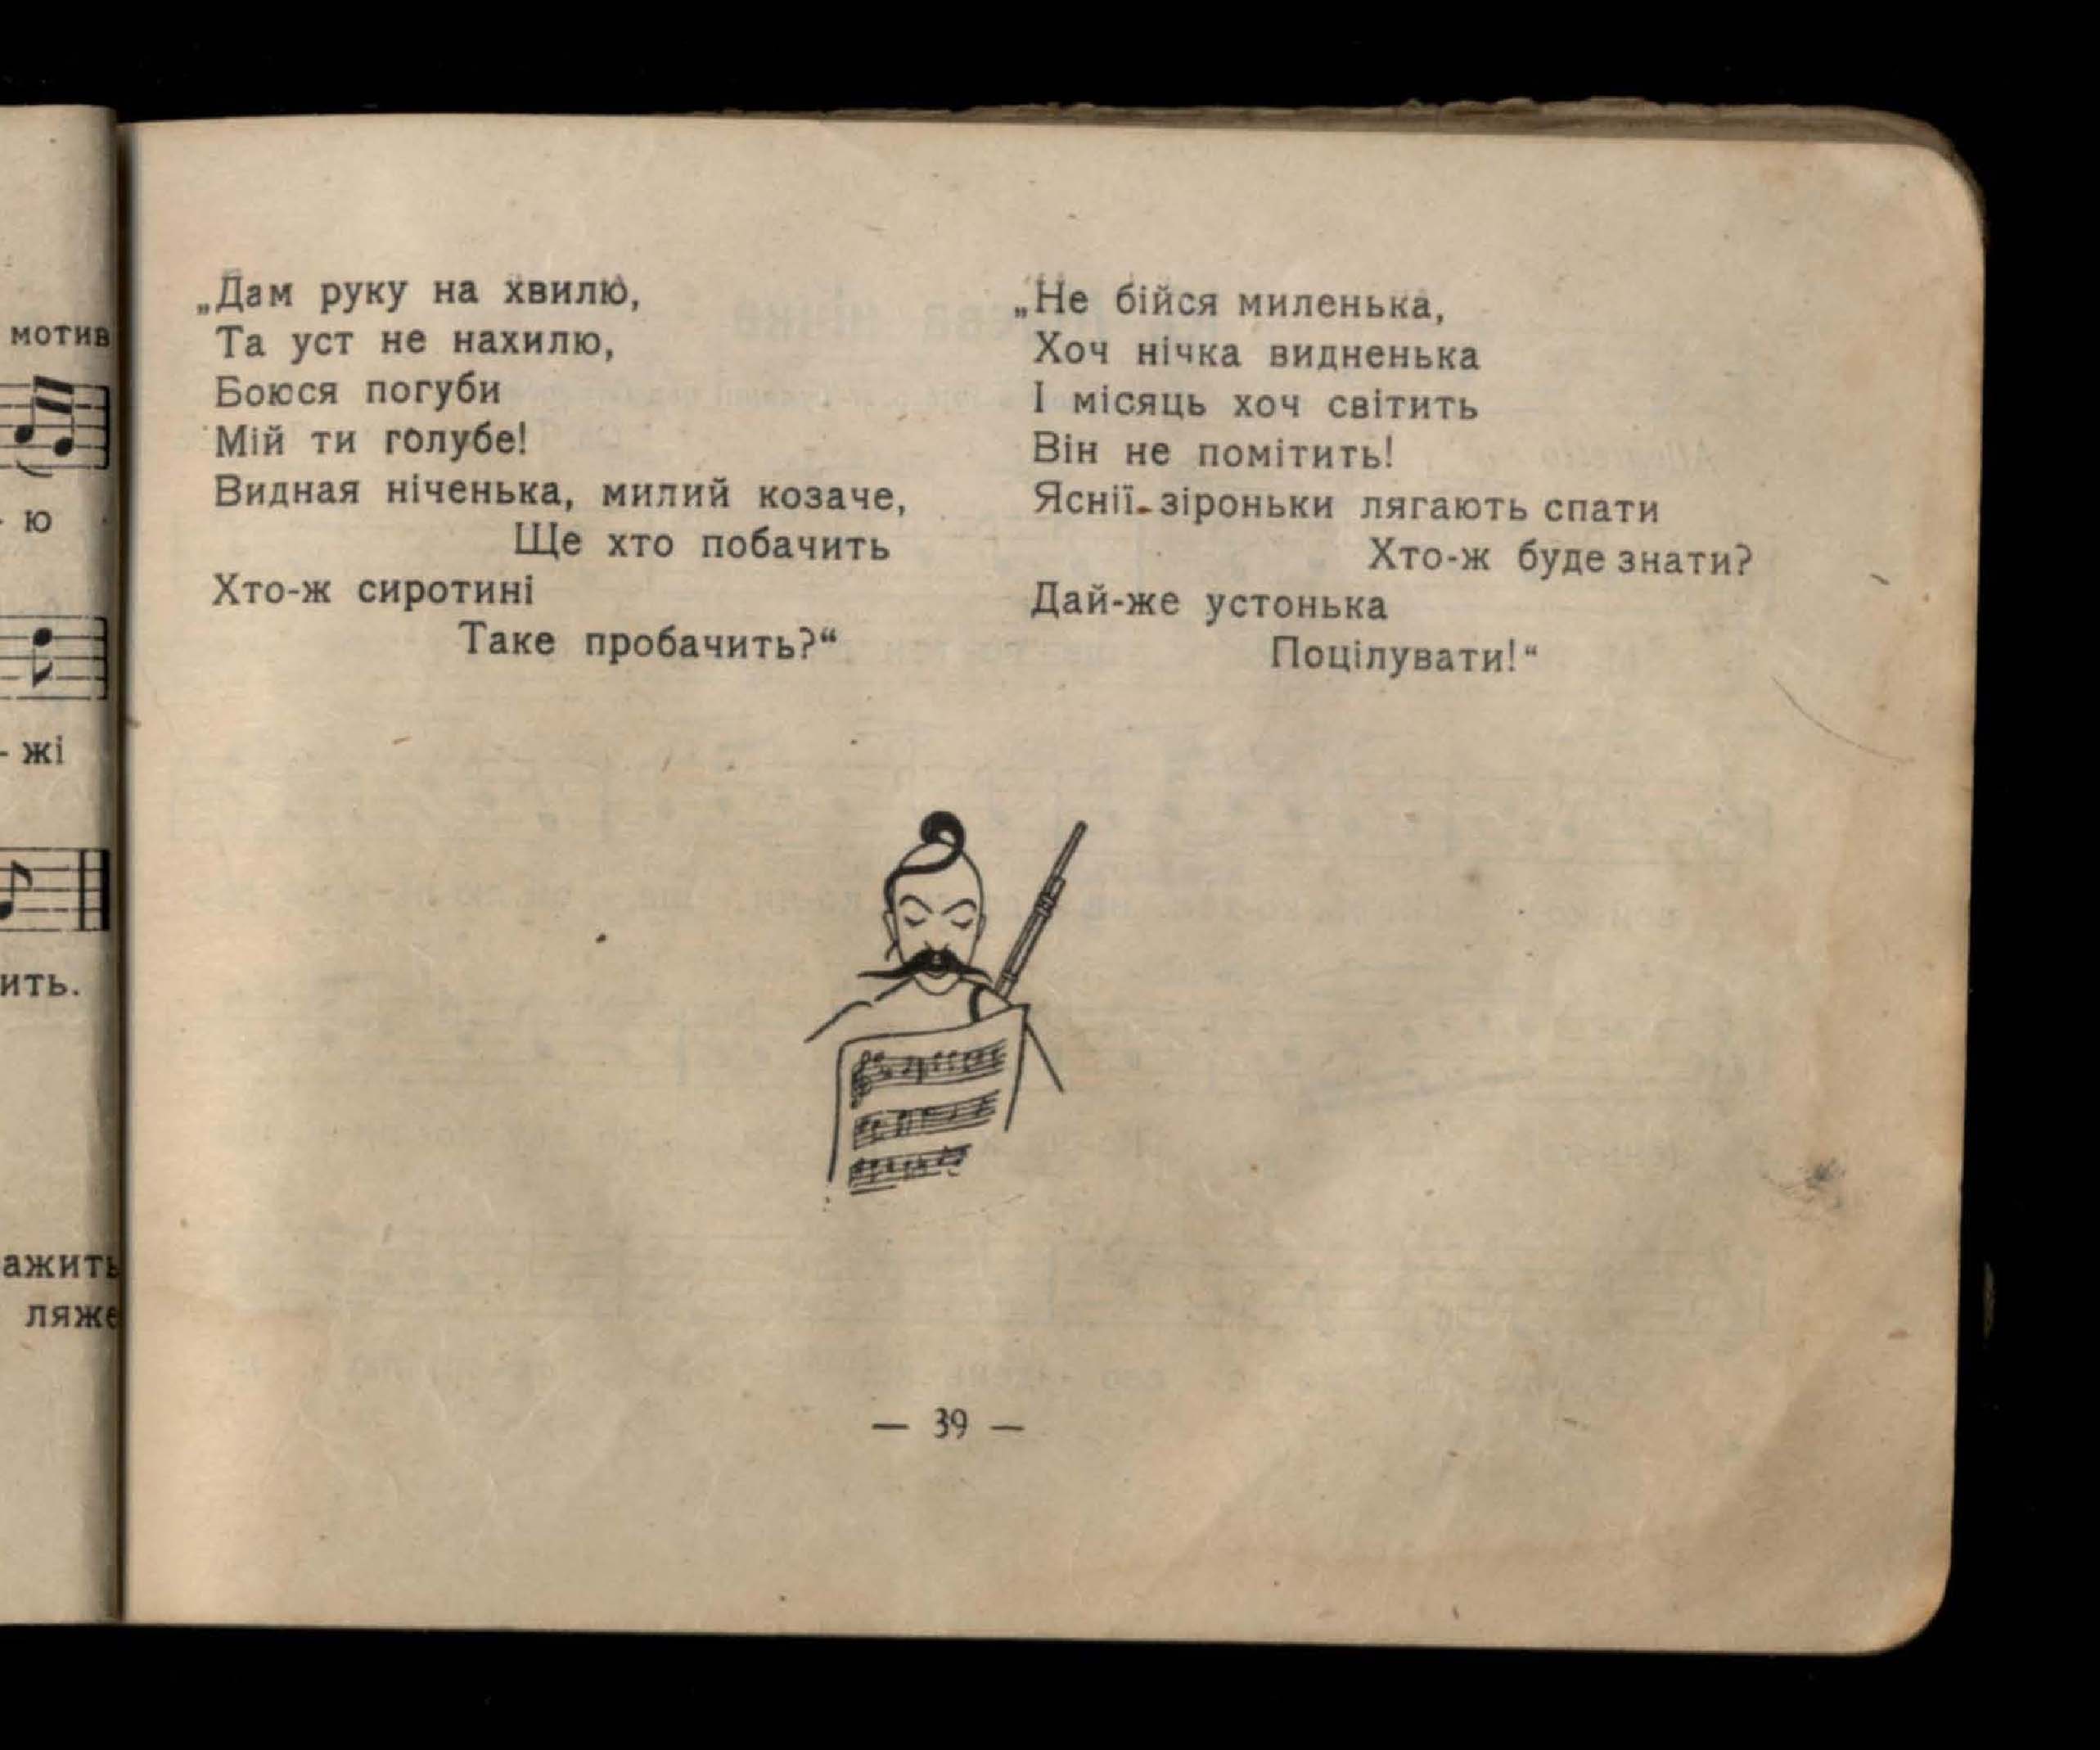 мотив
- ю
- жі
ить.
ажить
ляже
„Дам руку на хвилю,
Та уст не нахилю,
Боюся погуби
Мій ти голубе!
Видная ніченька, милий козаче,
Ще хто побачить
Хто-ж сиротині
Таке пробачить?“
„Не бійся миленька,
Хоч нічка видненька
І місяць хоч світить
Він не помітить!
Яснії зіроньки лягають спати
Хто-ж буде знати?
Дай-же устонька
Поцілувати!“
— 39 —